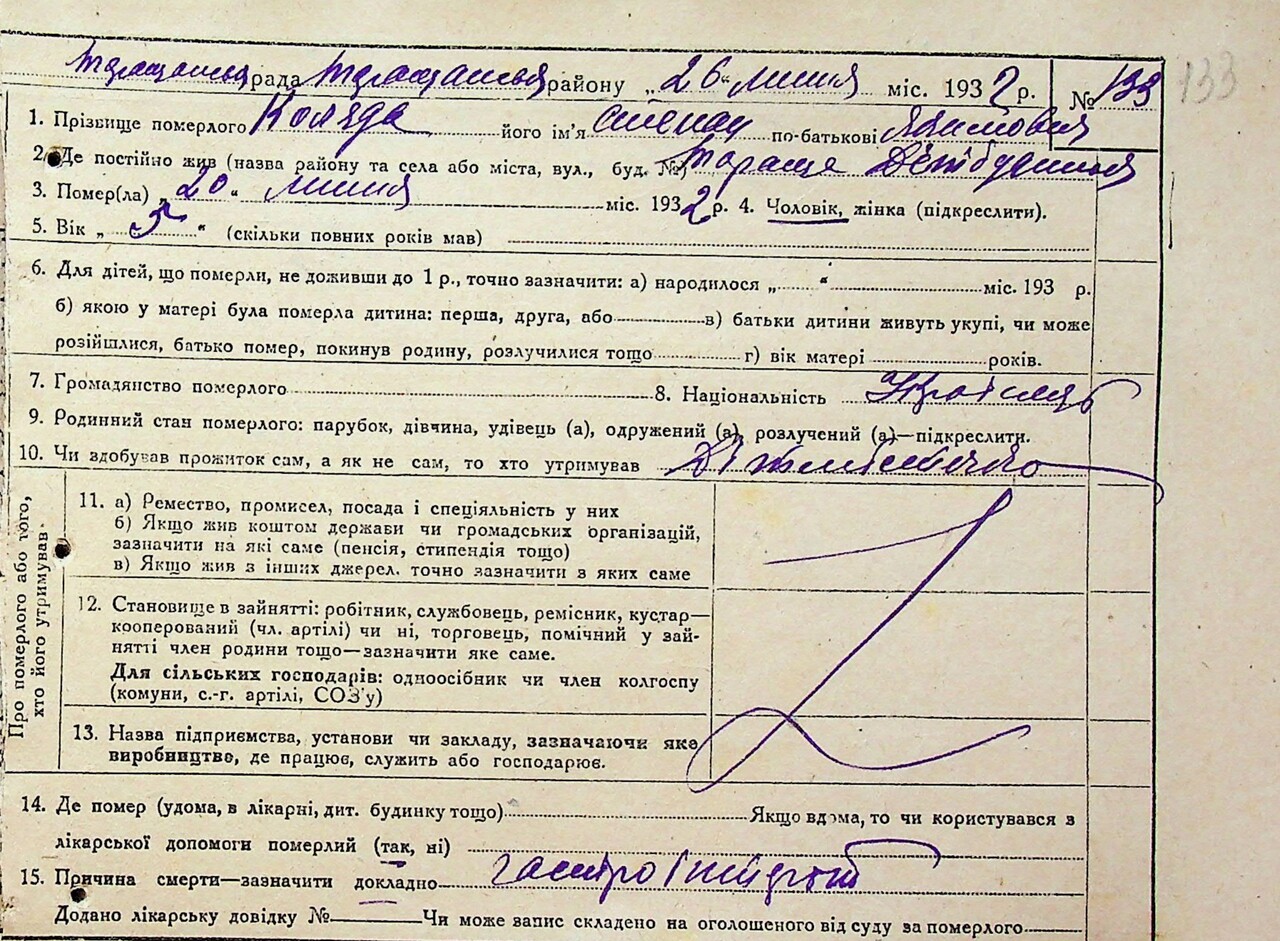 Таращанська рада Таращанського району „26“ липня міс. 1932 р. № 133 133
1. Прізвище померлого Коляда його ім'я Степан по-батькові Якимович
2. Де постійно жив (назва району та села або міста, вул., буд. №) Тараща Дітбудинок
3. Помер(ла) „20“ липня міс. 1932 р. 4. Чоловік, жінка (підкреслити).
5. Вік „5“ (скільки повних років мав)
6. Для дітей, що померли, не доживши до 1 р., точно зазначити: а) народилося „ “ міс. 193 р.
б) якою у матері була померла дитина: перша, друга, або в) батьки дитини живуть укупі, чи може
розійшлися, батько помер, покинув родину, розлучилися тощо г) вік матері років.
7. Громадянство померлого 8. Національність Українець
9. Родинний стан померлого: парубок, дівчина, удівець (а), одружений (а), розлучений (а)—підкреслити.
10. Чи здобував прожиток сам, а як не сам, то хто утримував
Про померлого або того,
хто його утримував
11. а) Ремество, промисел, посада і спеціяльність у них
б) Якщо жив коштом держави чи громадських організацій,
зазначити на які саме (пенсія, стипендія тощо)
в) Якщо жив з інших джерел. точно зазначити з яких саме
12. Становище в зайнятті: робітник, службовець, ремісник, кустар—
кооперований (чл. артілі) чи ні, торговець, помічний у зай-
нятті член родини тощо—зазначити яке саме.
Для сільських господарів: одноосібник чи член колгоспу
(комуни, с.-г. артілі, СОЗ'у)
13. Назва підприємства, установи чи закладу, зазначаючи яке
виробництво, де працює, служить або господарює.
14. Де помер (удома, в лікарні, дит. будинку тощо) Якщо вдома, то чи користувався з
лікарської допомоги померлий (так, ні)
15. Причина смерти—зазначити докладно
Додано лікарську довідку № Чи може запис складено на оголошеного від суду за померлого